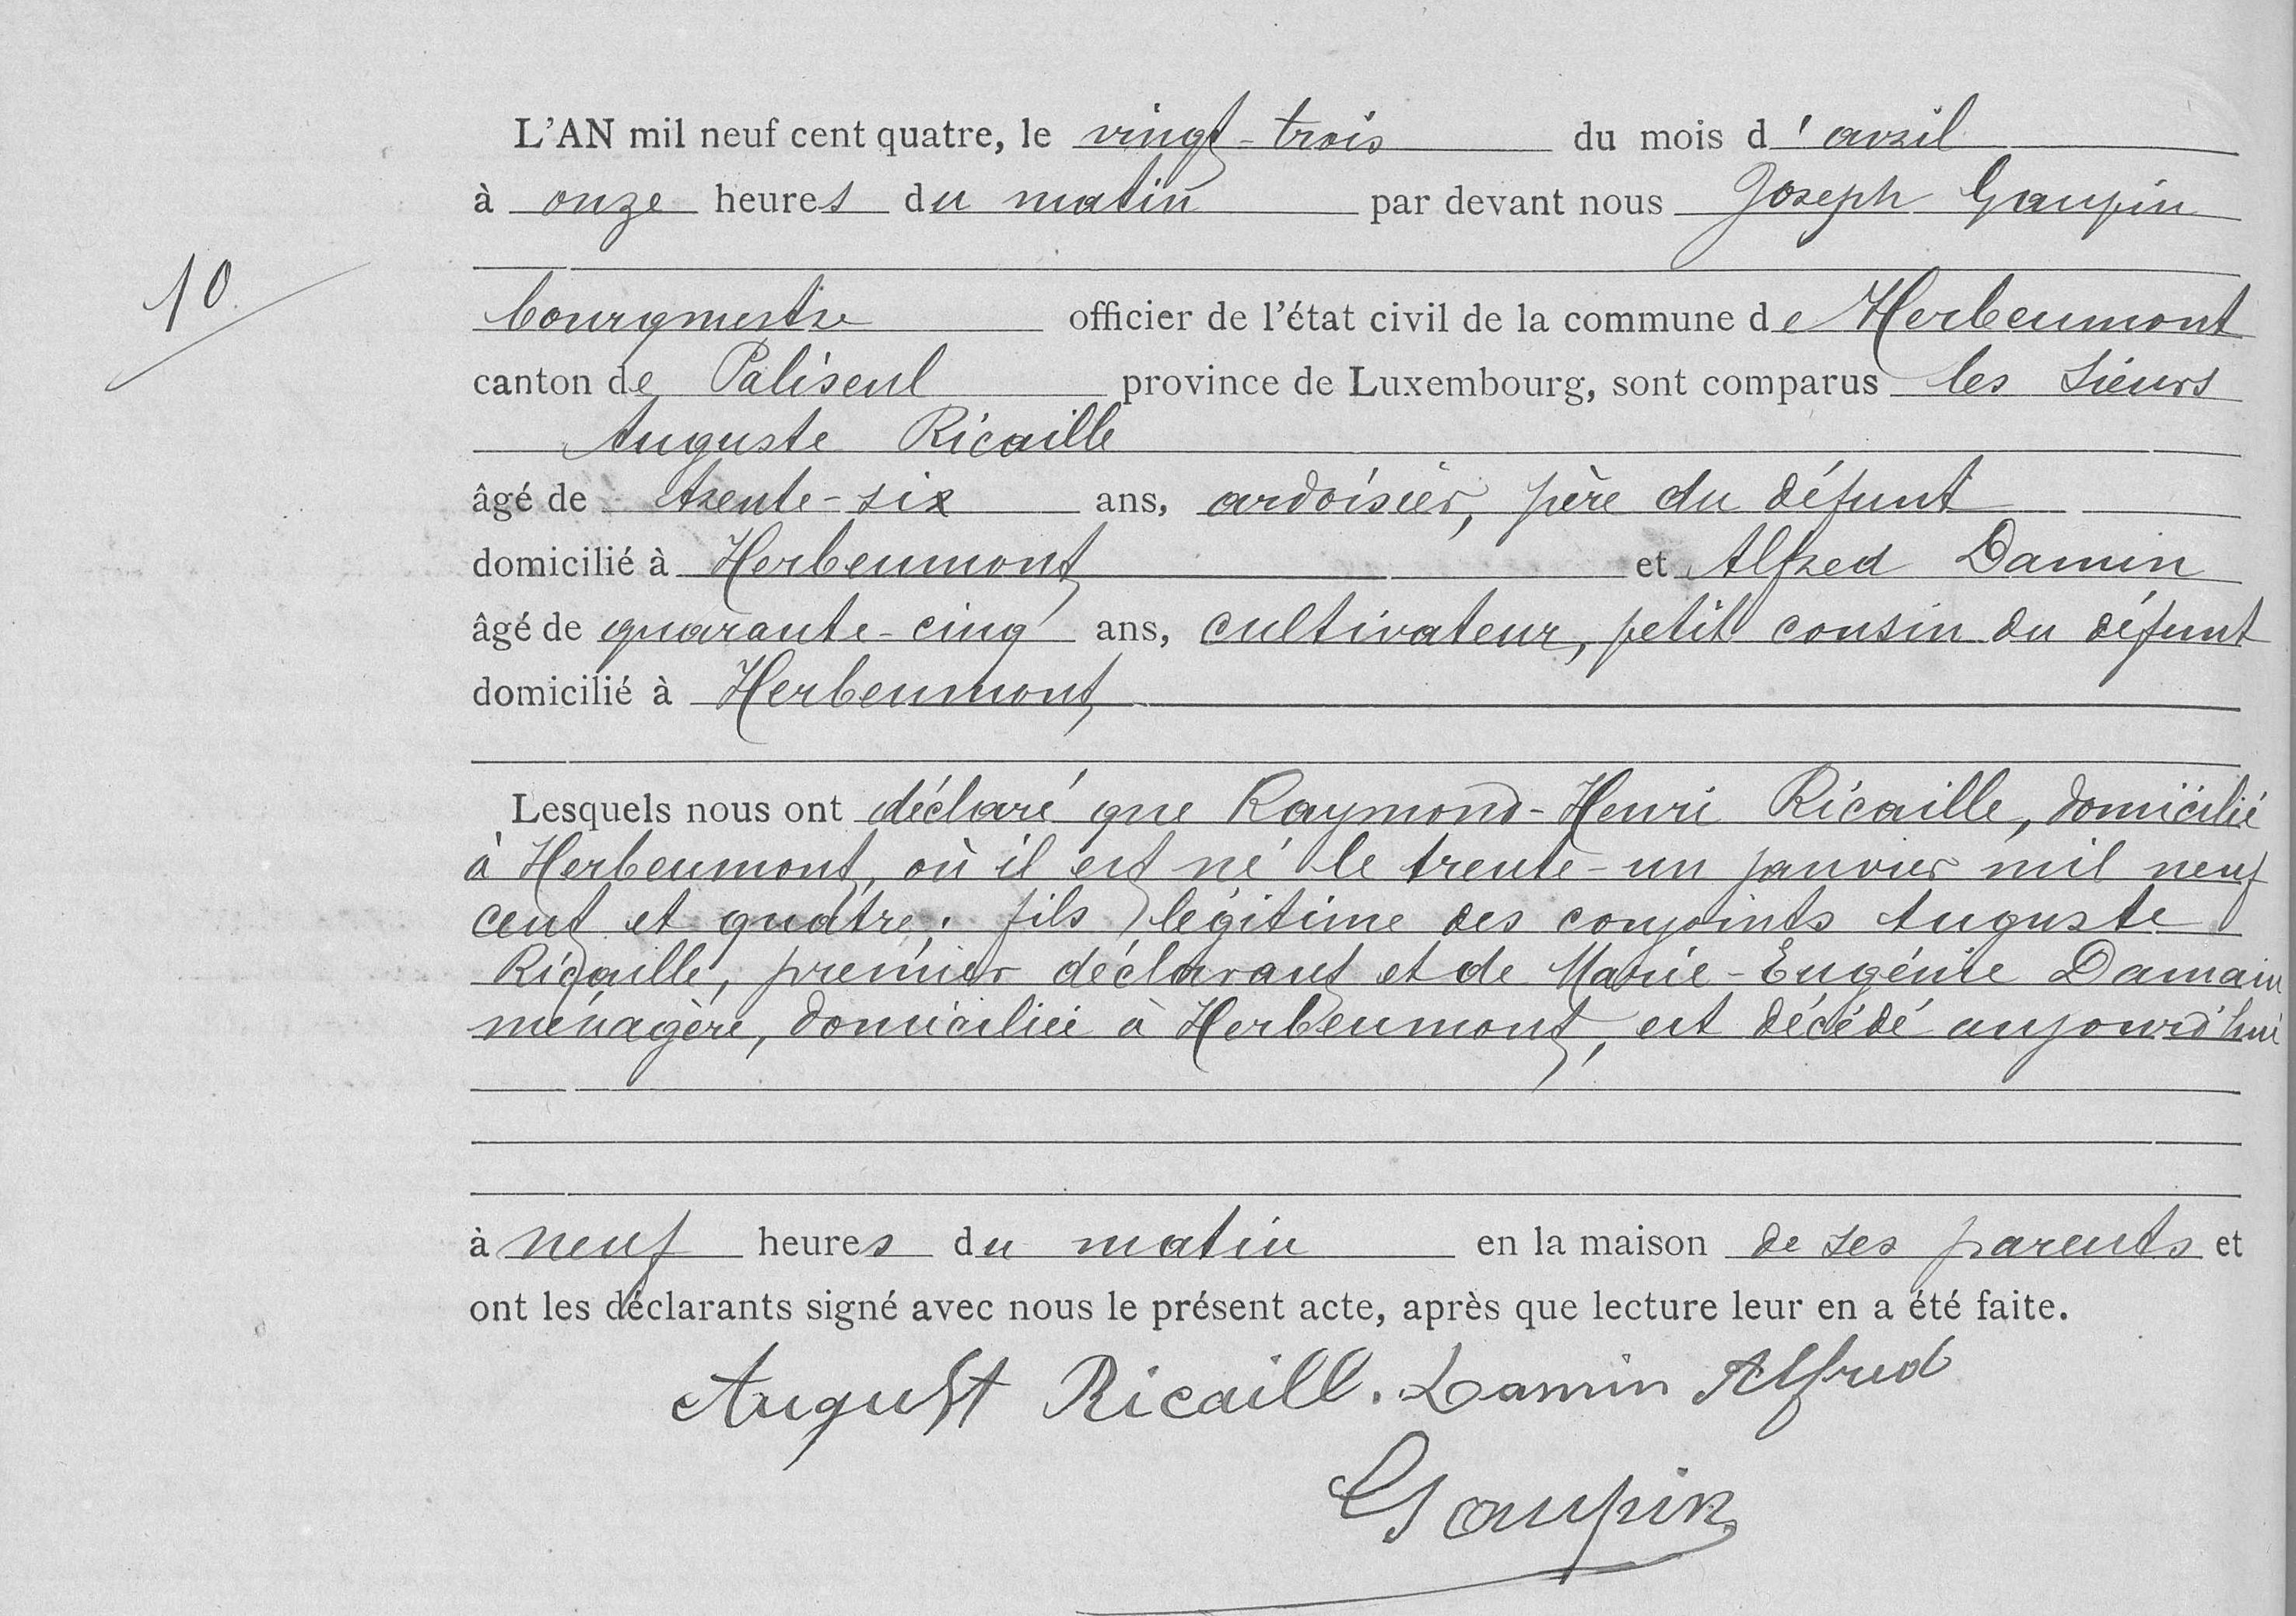 L'AN mil neuf cent quatre, le vingt-trois du mois d'avril
à onze heures du matin par devant nous Joseph Gaupin
10
bourgmestre officier de l'état civil de la commune de Herbeumont
canton de Paliseul province de Luxembourg, sont comparus les sieurs
Auguste Ricaille
âgé de trente-six ans, ardoisier, père du défunt
domicilié à Herbeumont et Alfred Damin
âgé de quarante-cinq ans, cultivateur, petit cousin du défunt
domicilié à Herbeumont,
Lesquels nous ont déclaré que Raymond-Henri Ricaille, domicilié
à Herbeumont, où il est né le trente-un janvier mil neuf
cent et quatre; fils légitime des conjoints Auguste
Ricaille, premier déclarant et de Marie-Eugénie Damain
ménagère, domiciliée à Herbeumont, est décédé aujourd'hui
à neuf heures du matin en la maison de ses parents et
ont les déclarants signé avec nous le présent acte, après que lecture leur en a été faite.
August Ricaill. Damin Alfred
Gaupin